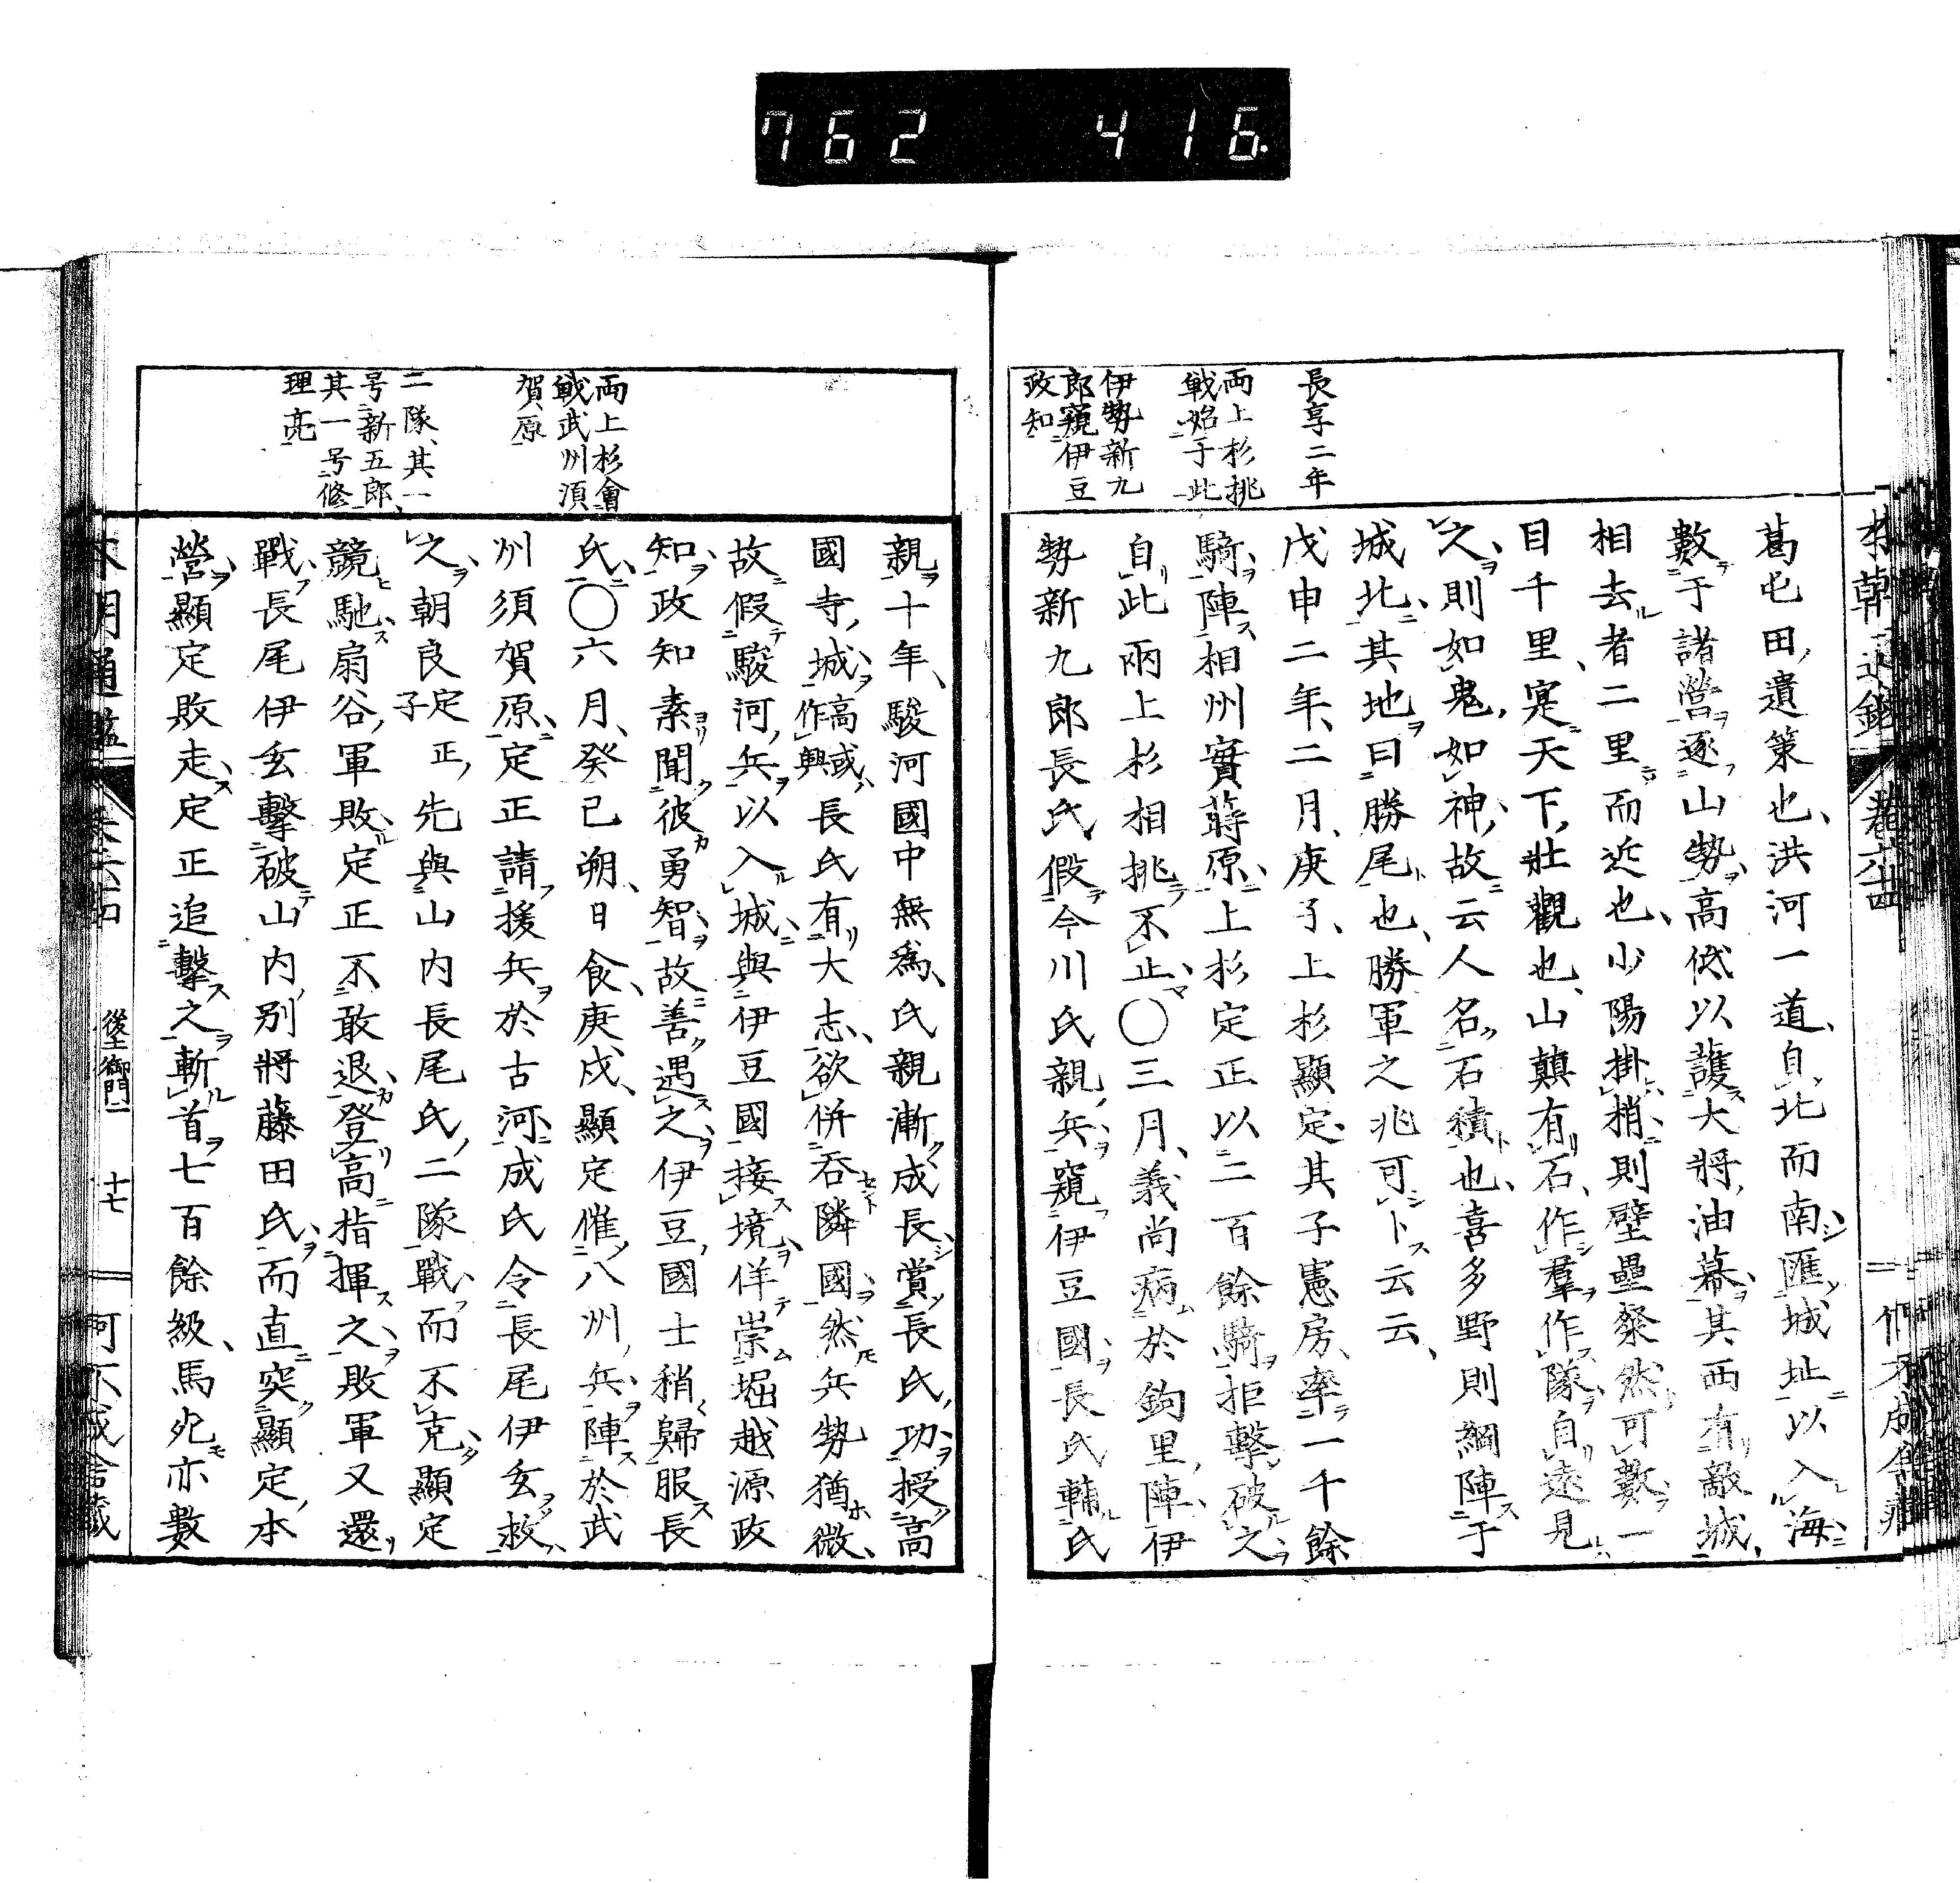 762 416.
長享二年
両上杉挑
戦始于此
伊勢新九
郎窺伊豆
政知
葛屯田遺策也洪河一道自北而南匯城址以入海
數于諸營逐山勢高低以護大將油幕其西有敵城
相去者二里而近也小陽掛梢則壁壘粲然可數一
目千里寔天下壮觀也山顛有石作羣作隊自遠見
之則如鬼如神故云人名石積也喜多野則綱陣于
城北其地曰勝尾也勝軍之兆可卜云云
戊申二年二月庚子上杉顯定其子憲房率一千餘
騎陣相州實蒔原上杉定正以二百餘騎拒撃破之
自此兩上杉相挑不止〇三月義尚病於鉤里陣伊
勢新九郎長氏假今川氏親兵窺伊豆國長氏輔氏
両上杉會
戦武州湏
賀原
二隊其一
号新五郎
其一号修
理亮
親十年駿河國中無爲氏親漸成長賞長氏功授高
國寺城高或作興長氏有大志欲併吞隣國然兵勢猶微
故假駿河兵以入城與伊豆國接境佯崇堀越源政
知政知素聞彼勇智故善遇之伊豆國士稍歸服長
氏〇六月癸已朔日食庚戍顯定催八州兵陣於武
州須賀原定正請援兵於古河成氏令長尾伊玄救
之朝良定正子先與山内長尾氏二隊戰而不克顯定
競馳扇谷軍敗定正不敢退登高指揮之敗軍又還
戰長尾伊玄擊破山内別將藤田氏而直突顯定本
營顯定敗走定正追擊之斬首七百餘級馬死亦數
後土御門二
十七